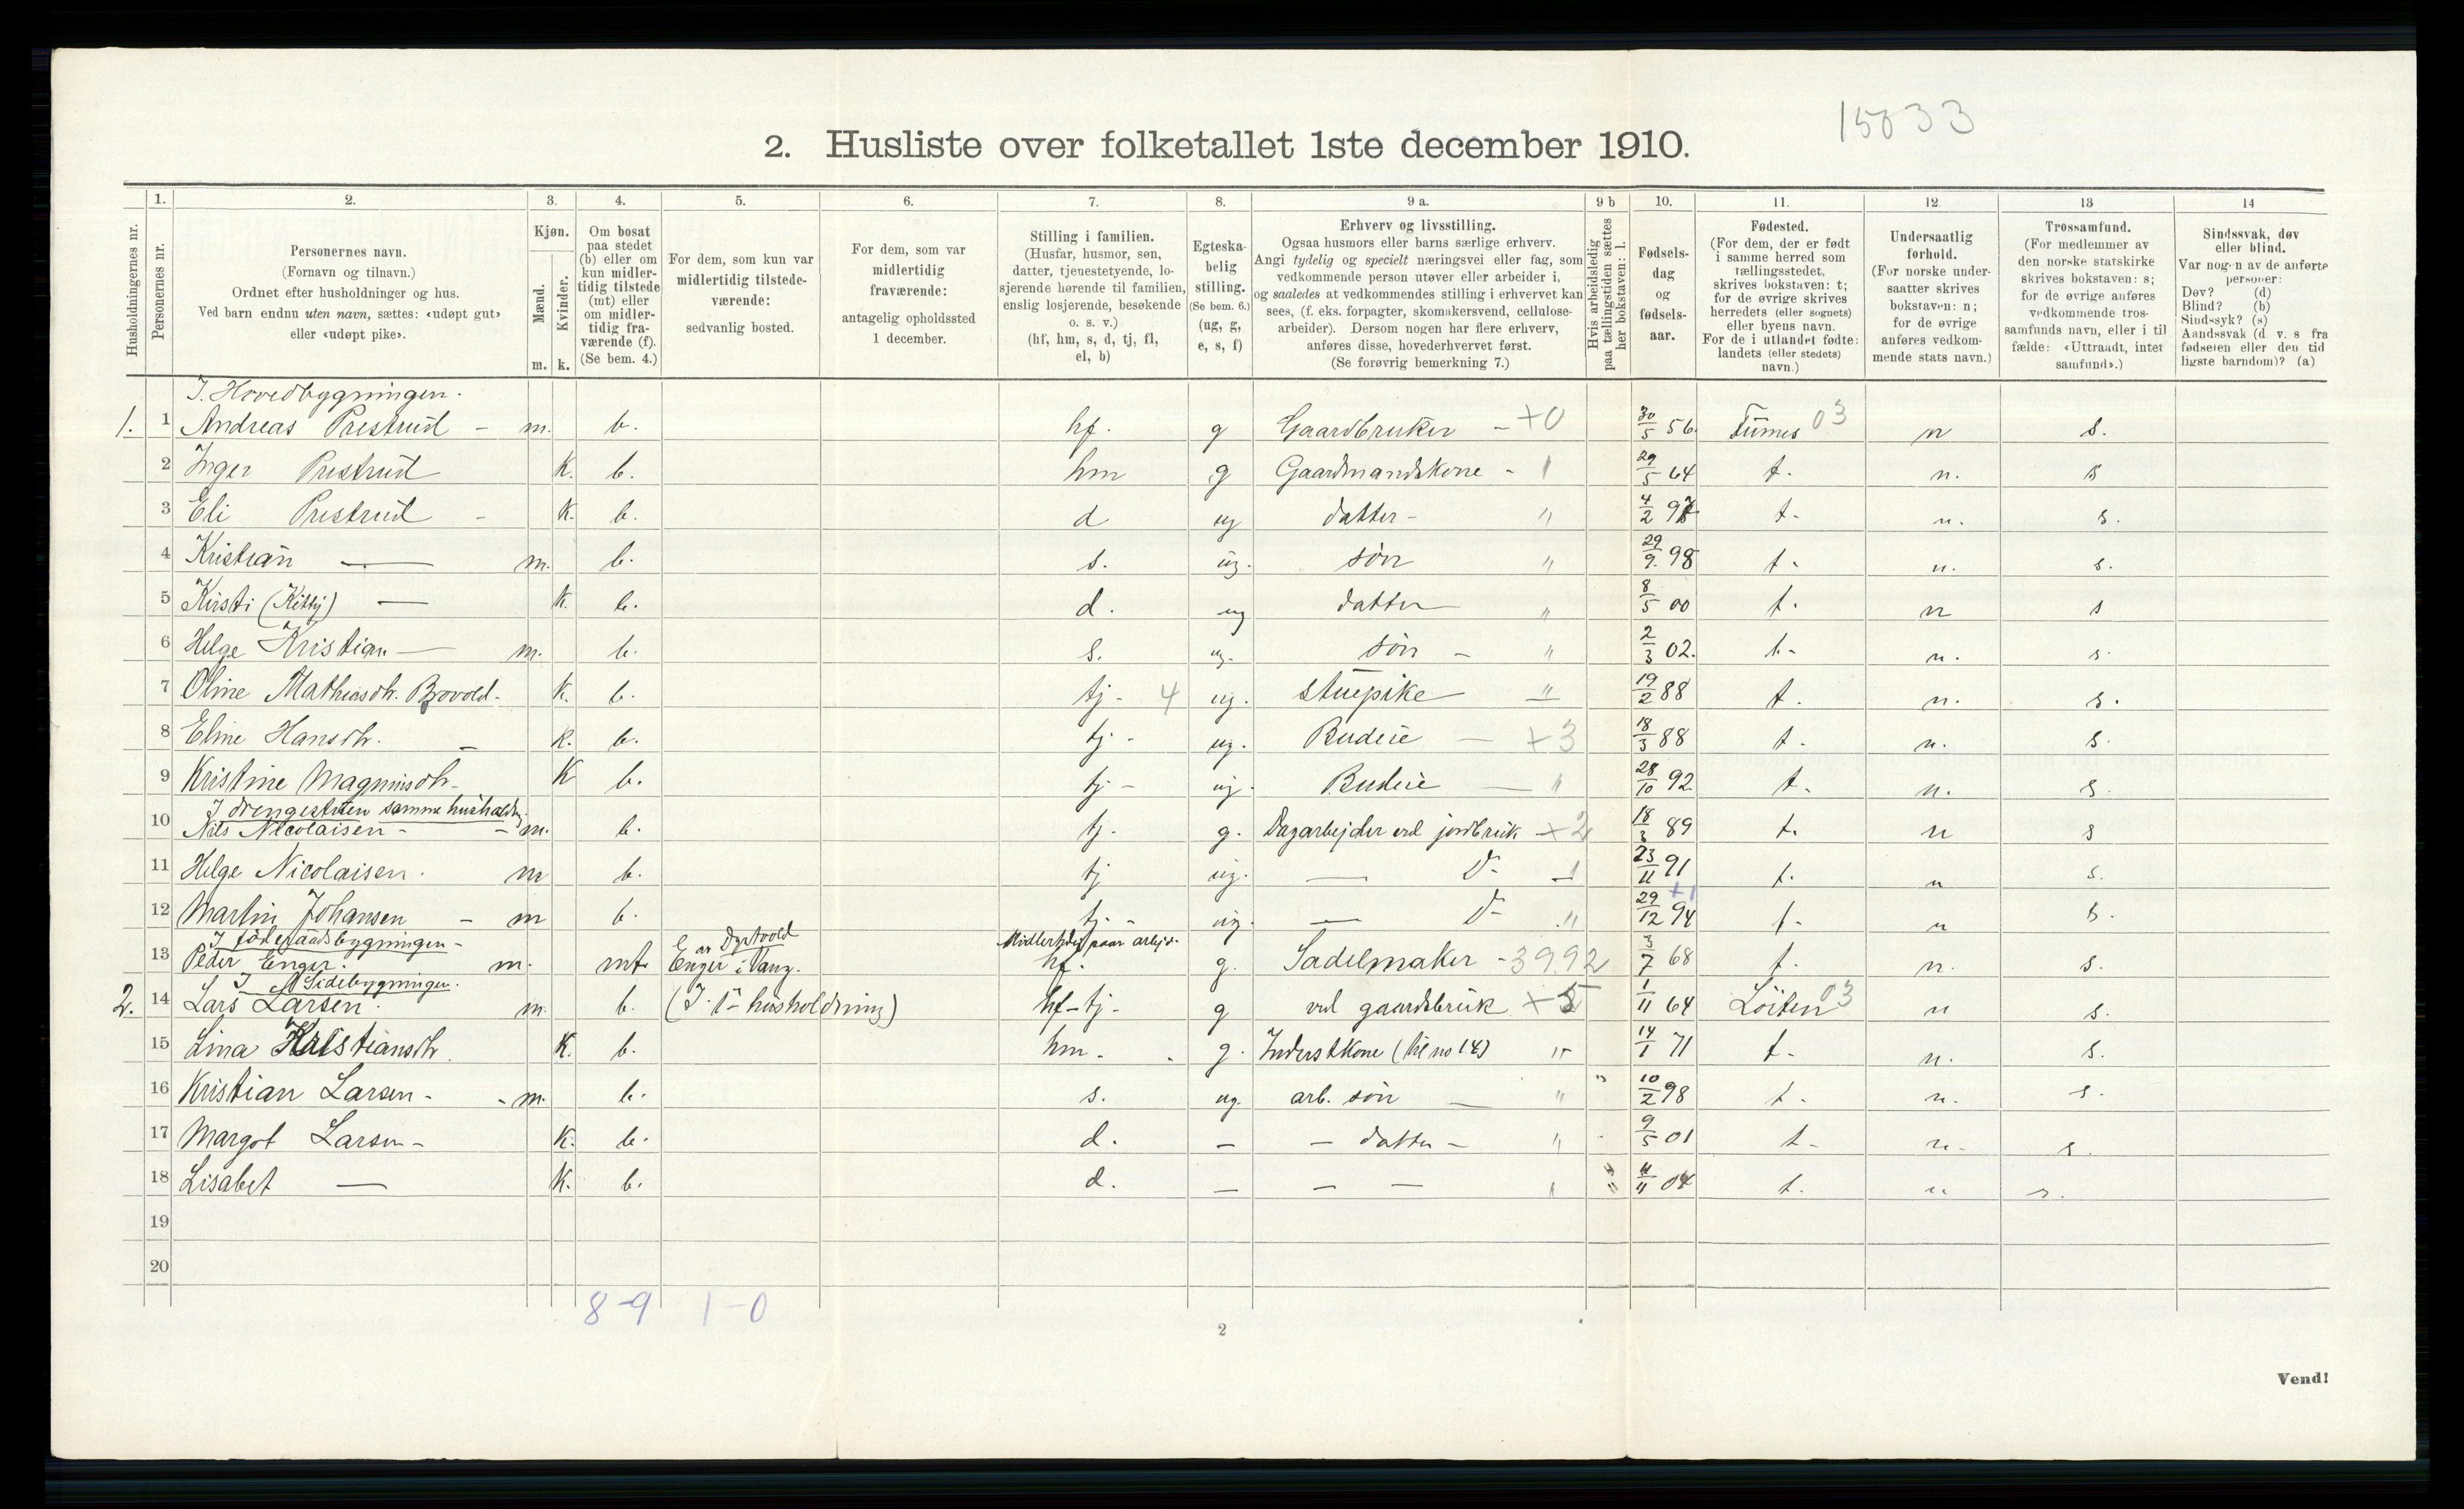 15033
2. Husliste over folketallet 1ste december 1910.
Husholdningernes nr.
1.
Personernes nr.
2.
Personernes navn.
(Fornavn og tilnavn.)
Ordnet efter husholdninger og hus.
Ved barn endnu uten navn, sættes: «udøpt gut»
eller «udøpt pike».
3.
Kjøn.
Mænd.
m.
Kvinder.
k.
4.
Om bosat
paa stedet
(b) eller om
kun midler-
tidig tilstede
(mt) eller
om midler-
tidig fra-
værende (f).
(Se bem. 4.)
5.
For dem, som kun var
midlertidig tilstede-
værende:
sedvanlig bosted.
6.
For dem, som var
midlertidig
fraværende:
antagelig opholdssted
1 december.
7.
Stilling i familien.
(Husfar, husmor, søn,
datter, tjenestetyende, lo-
sjerende hørende til familien,
enslig losjerende, besøkende
o. s. v.)
(hf, hm, s, d, tj, fl,
el, b)
8.
Egteska-
belig
stilling.
(Se bem. 6.)
(ug, g,
e, s, f)
9 a.
Erhverv og livsstilling.
Ogsaa husmors eller barns særlige erhverv.
Angi tydelig og specielt næringsvei eller fag, som
vedkommende person utøver eller arbeider i,
og saaledes at vedkommendes stilling i erhvervet kan
sees, (f. eks. forpagter, skomakersvend, cellulose-
arbeider). Dersom nogen har flere erhverv,
anføres disse, hovederhvervet først.
(Se forøvrig bemerkning 7.)
9 b
Hvis arbeidsledig
paa tællingstiden sættes
her bokstaven: l.
10.
Fødsels-
dag
og
fødsels-
aar.
11.
Fødested.
(For dem, der er født
i samme herred som
tællingsstedet,
skrives bokstaven: t;
for de øvrige skrives
herredets (eller sognets)
eller byens navn.
For de i utlandet fødte:
landets (eller stedets)
navn.)
12.
Undersaatlig
forhold.
(For norske under-
saatter skrives
bokstaven: n;
for de øvrige
anføres vedkom-
mende stats navn.)
13
Trossamfund.
(For medlemmer av
den norske statskirke
skrives bokstaven: s;
for de øvrige anføres
vedkommende tros-
samfunds navn, eller i til
fælde: «Uttraadt, intet
samfund».)
14
Sindssvak, døv
eller blind.
Var nogen av de anførte
personer:
Døv? (d)
Blind? (b)
Sindssyk? (s)
Aandssvak (d v. s fra
fødselen eller den tid
ligste barndom)? (a)
I. Hovedbygningen.
1. 1 Andreas Prestrud - m. b. hf. g Gaardbruker - +0 30/5 56 Furnes 03 n s.
2 Inger Prestrud K. b. hm g Gaardmandskone - " 29/5 64 t. n. s
3 Eli Prestrud - K. b. d ug datter - " 4/2 97 t- n. s.
4 Kristian — m. b. s. ug. søn " 29/9 98 t- n. s.
5 Kirsti (Kitty) — K. b. d. ug datter " 8/5 00 t. n s
6 Helge Kristian — m. b. s. ug. søn - " 2/3 02. t- n. s.
7 Oline Mathiasdtr. Brovold- K. b. tj - 4 ug. stuepike " 19/2 88 t. n. s.
8 Eline Hansdtr. - K. b. tj - ug. Budeie - +3 18/3 88 t. n. s.
9 Kristine Magnusdtr- K b. tj - ug. Budeie — " 28/10 92 t. n. s.
I drengestuen samme hushold
10 Nils Nicolaisen - - m. b. tj. g. Dagarbejder ved jordbruk +2 18/3 89 t. n s
11 Helge Nicolaisen. m b. tj ug. — D- 23/11 91 t. n s.
12 Martin Johansen - m b. tj - ug. — D- " 29/12 94 +1 t- n s.
I föderaadsbygningen-
13 Peder Enger. m. mt Enger i Vang. Midlertidig paa arbejd- hf. g. Sadelmaker - 3992 3/7 68 t. n. s.
I Sidebygningen.
2. 14 Lars Larsen. m. b. (I 1- husholdning) hf-tj- g ved gaardsbruk +5 1/11 64 Löiten 03 n s.
15 Lina Kristiansdtr. K. b. hm. g. Inderstkone (til no 14) " 14/1 71 t- n. s.
16 Kristian Larsen- -m. b. s. ug. arb. søn — " " 10/2 98 t- n. s.
17 Margot Larsen- K. b. d. - - datter- " 9/5 01 t- n- s.
18 Lisabet — K. b. d. - - - " " 4/11 04 t. n s.
19
20
8-9 1-0
2
Vend!